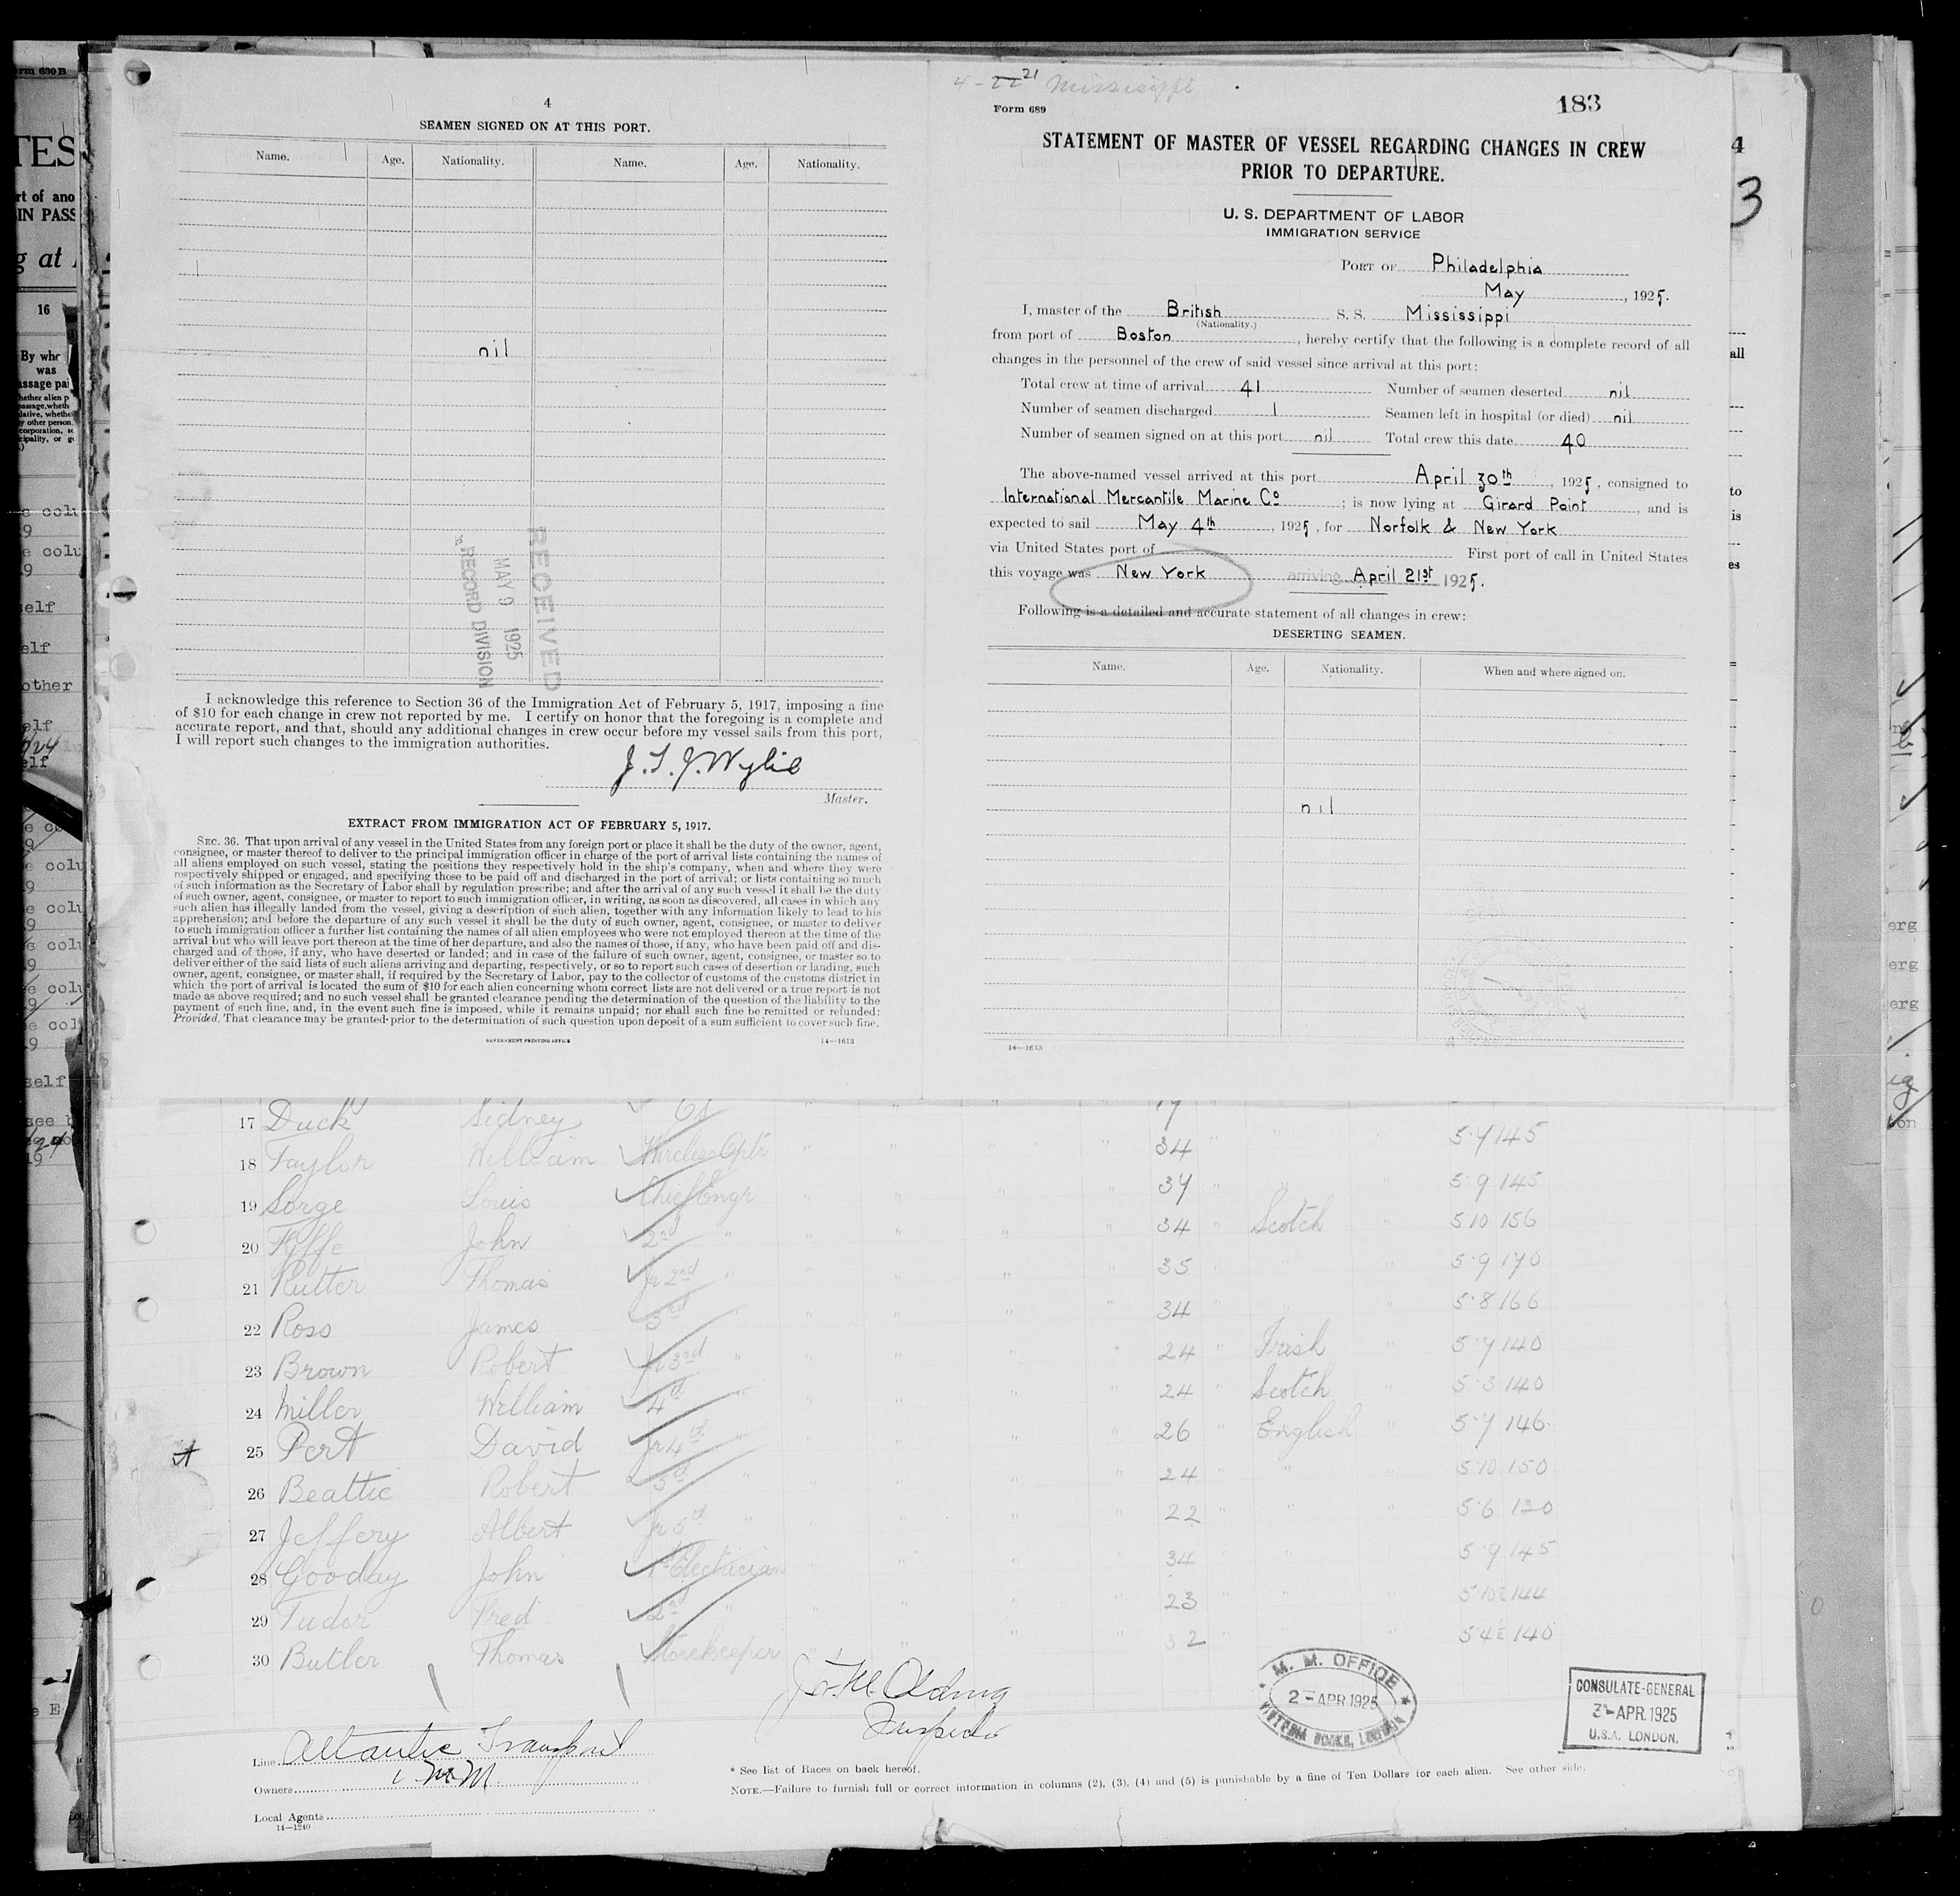 4
SEAMEN SIGNED ON AT THIS PORT.
Name. Age. Nationality. Name. Age. Nationality.
nil
RECEIVED
MAY 9 1925
RECORD DIVISION
I acknowledge this reference to Section 36 of the Immigration Act of February 5, 1917, imposing a fine
of $10 for each change in crew not reported by me. I certify on honor that the foregoing is a complete and
accurate report, and that, should any additional changes in crew occur before my vessel sails from this port,
I will report such changes to the immigration authorities.
J. T. J. Wylie
Master.
EXTRACT FROM IMMIGRATION ACT OF FEBRUARY 5, 1917.
SEC. 36. That upon arrival of any vessel in the United States from any foreign port or place it shall be the duty of the owner, agent,
consignee, or master thereof to deliver to the principal immigration officer in charge of the port of arrival lists containing the names of
all aliens employed on such vessel, stating the positions they respectively hold in the ship's company, when and where they were
respectively shipped or engaged, and specifying those to be paid off and discharged in the port of arrival; or lists containing so much
of such information as the Secretary of Labor shall by regulation prescribe; and after the arrival of any such vessel it shall be the duty
of such owner, agent, consignee, or master to report to such immigration officer, in writing, as soon as discovered, all cases in which any
such alien has illegally landed from the vessel, giving a description of such alien, together with any information likely to lead to his
apprehension; and before the departure of any such vessel it shall be the duty of such owner, agent, consignee, or master to deliver
to such immigration officer a further list containing the names of all alien employees who were not employed thereon at the time of the
arrival but who will leave port thereon at the time of her departure, and also the names of those, if any, who have been paid off and dis-
charged and of those, if any, who have deserted or landed; and in case of the failure of such owner, agent, consignee, or master so to
deliver either of the said lists of such aliens arriving and departing, respectively, or so to report such cases of desertion or landing, such
owner, agent, consignee, or master shall, if required by the Secretary of Labor, pay to the collector of customs of the customs district in
which the port of arrival is located the sum of $10 for each alien concerning whom correct lists are not delivered or a true report is not
made as above required; and no such vessel shall be granted clearance pending the determination of the question of the liability to the
payment of such fine, and, in the event such fine is imposed, while it remains unpaid; nor shall such fine be remitted or refunded:
Provided, That clearance may be granted prior to the determination of such question upon deposit of a sum sufficient to cover such fine.
GOVERNMENT PRINTING OFFICE 14—1613
4-22 21 Mississippi
Form 689 183
STATEMENT OF MASTER OF VESSEL REGARDING CHANGES IN CREW
PRIOR TO DEPARTURE.
U. S. DEPARTMENT OF LABOR
IMMIGRATION SERVICE
PORT OF Philadelphia
May, 1925.
I, master of the British S. S. Mississippi
(Nationality.)
from port of Boston, hereby certify that the following is a complete record of all
changes in the personnel of the crew of said vessel since arrival at this port:
Total crew at time of arrival 41 Number of seamen deserted nil
Number of seamen discharged 1 Seamen left in hospital (or died) nil
Number of seamen signed on at this port nil Total crew this date 40
The above-named vessel arrived at this port April 30th, 1925, consigned to
International Mercantile Marine Co; is now lying at Girard Point, and is
expected to sail May 4th, 1925, for Norfolk & New York
via United States port of First port of call in United States
this voyage was New York arriving April 21st 1925.
Following is a detailed and accurate statement of all changes in crew:
DESERTING SEAMEN.
Name. Age. Nationality. When and where signed on.
nil
14—1613
17 Duck Sidney 17
18 Taylor William Wireless Optr " " " " 34 " 5·7 145
19 Sorge Louis Chief Engr " " " " 37 " 5 9 145
20 Fyffe John 2nd " " " " " 34 " Scotch " 5 10 156
21 Rutter Thomas Jr 2nd " " " " 35 5·9 170
22 Ross James 3rd " " " " " 34 " " 5·8 166
23 Brown Robert Jr 3rd " " " " " 24 " Irish " 5·7 140
24 Miller William 4th " " " " " 24 " Scotch " 5·8 140
25 Pert David Jr 4th " " " " 26 " English " 5·7 146
26 Beattie Robert 5th " " " " " 24 " " " 5·10 150
27 Jeffery Albert Jr 5th " " " " " 22 " " " 5·6 130
28 Gooday John 1st Electrician " " " 34 " " 5·9 145
29 Tudor Fred 2nd " " " " 23 " " 5·10½ 144
30 Butler Thomas Storekeeper " " " 32 " " 5 4½ 140
Inspector
M. M. OFFICE
2-APR 1925
VICTORIA DOCKS, LONDON
CONSULATE-GENERAL
3-APR.1925
U.S.A. LONDON.
Line Atlantic Transport
Owners I.M.M.
Local Agents
14—1240
* See list of Races on back hereof.
NOTE.—Failure to furnish full or correct information in columns (2), (3), (4) and (5) is punishable by a fine of Ten Dollars for each alien. See other side.